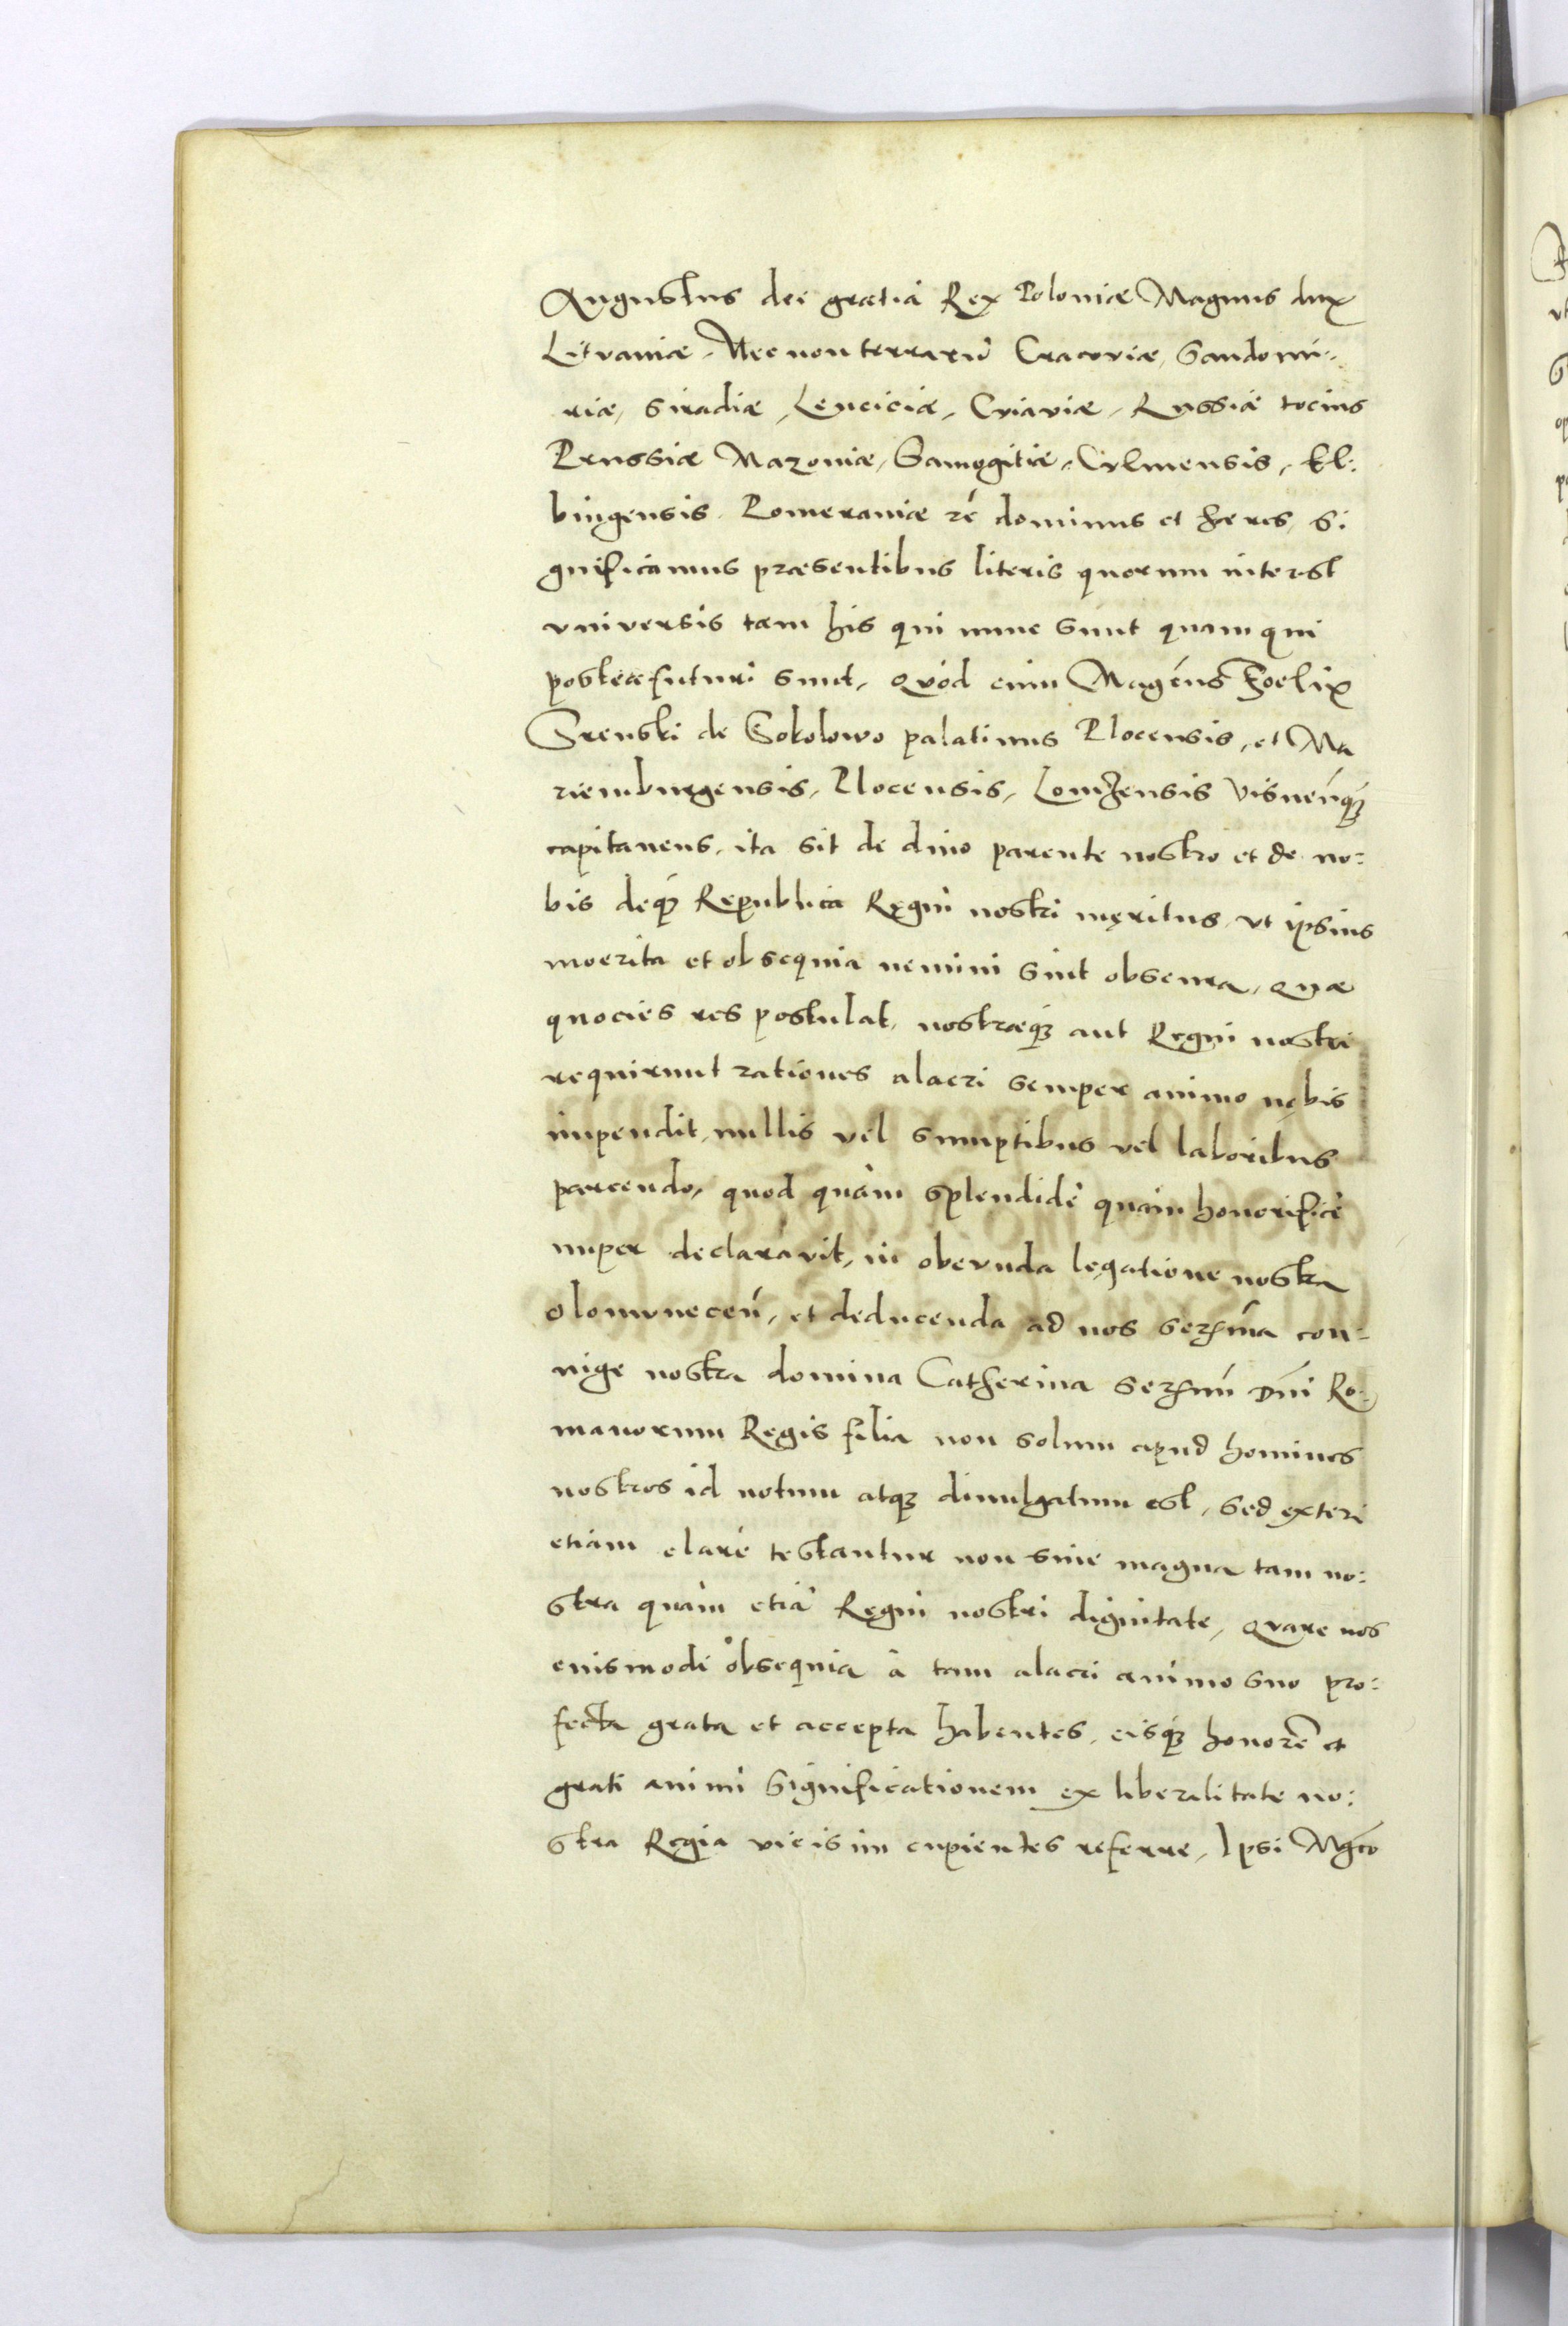 Augustus dei gratia Rex Poloniæ Magnus dux
Litvaniæ, Nec non terrarū Cracoviæ, Sandomi-
riæ, Siradiæ, Lenciciæ, Cviaviæ, Russiæ tocius
Prussiæ Mazoviæ, Samogitiæ, Cvlmensis, El:
bingensis Pomeraniæ zc̄ dominus et heres, Si
gnificamus præsentibus literis quorum interest
vniversis tam his qui nunc sunt quam qui
postea futuri sunt, Qvòd cum Magcūs Foelix
Srenski de Sokolowo palatinus Plocensis, et Ma
riemburgensis, Plocensis, Lomzensis Visneñqз
capitaneus, ita sit de divo parente nostro et de no:
bis deqз Republica Regni nostri meritus, vt ipsius
moerita et obsequia nemini sint obscura, Quæ
quocies res postulat, nostræqз aut Regni nostri
requirunt rationes alacri semper animo nobis
impendit, nullis vel sumptibus vel laboribus
parcendo, quod quàm splendidè quàm honorificè
nuper declaravit, in obeunda legatione nostra
olomuneceñ, et deducenda ad nos Serma con:
iuge nostra domina Catherina Sermi Dni Ro:
manorum Regis filia non solum apud homines
nostros id notum atqз divulgatum est, sed exteri
etiam clarè testantur non sine magna tam no:
stra quàm etiā Regni nostri dignitate, Qvare nos
eiusmodi obsequia à tam alacri animo suo pro:
fecta grata et accepta habentes, eisqз honorē et
grati animi significationem ex liberalitate no:
stra Regia vicisim cupientes referre, Ipsi Mgco